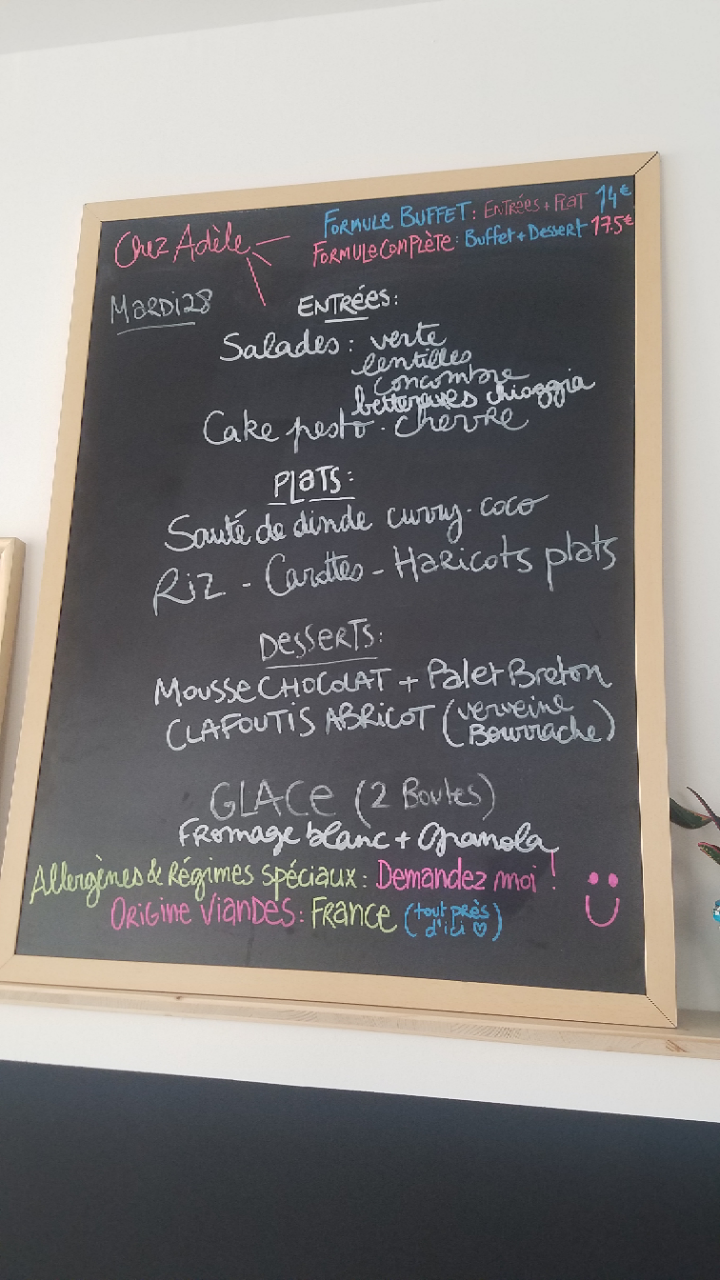 Chez Adèle
FORMULE BUFFET: ENTRÉES + PLAT 14€
FORMULE COMPLÈTE: Buffet + Dessert 17.5€
MARDI 28
ENTRÉES:
Salades: verte
lentilles
concombre
betteraves chioggia
Cake pesto - chèvre
PLATS:
Sauté de dinde curry-coco
RIZ - Carottes - HARICOTS plats
DESSERTS:
MOUSSE CHOCOLAT + Palet Breton
CLAFOUTIS ABRICOT (verveine
Bourrache)
GLACE (2 Boules)
FROMAGE blanc + Granola
Allergènes & Régimes spéciaux: Demandez moi !
ORIGINE VIANDES: FRANCE (tout près
d'ici ♡)